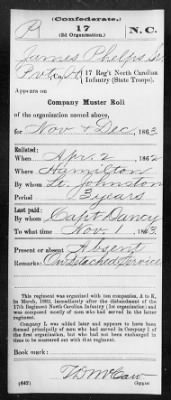 (Confederate.)
P 17 N.C.
(2d Organization.)
James Phelps Sr.
Pvt, Co. H, 17 Reg't North Carolina
Infantry (State Troops).
Appears on
Company Muster Roll
of the organization named above,
for Nov & Dec, 1863
Enlisted:
When Apr. 2 1862
Where Hamilton
By whom Lt. Johnston
Period 3 years
Last paid:
By whom Capt Dancy
To what time Nov. 1 1863
Present or absent Absent
Remarks: On Detached Service
This regiment was organized with ten companies, A to K,
in March, 1862, immediately after the disbandment of the
17th Regiment North Carolina Infantry (1st organization) and
was composed mostly of men who had served in the latter
regiment.
Company L was added later and appears to have been
formed principally of men who had served in Company I
of the first organization, but who had not been exchanged in
time to be mustered out with that regiment.
Book mark:
(642) T B McCaw
Copyist.